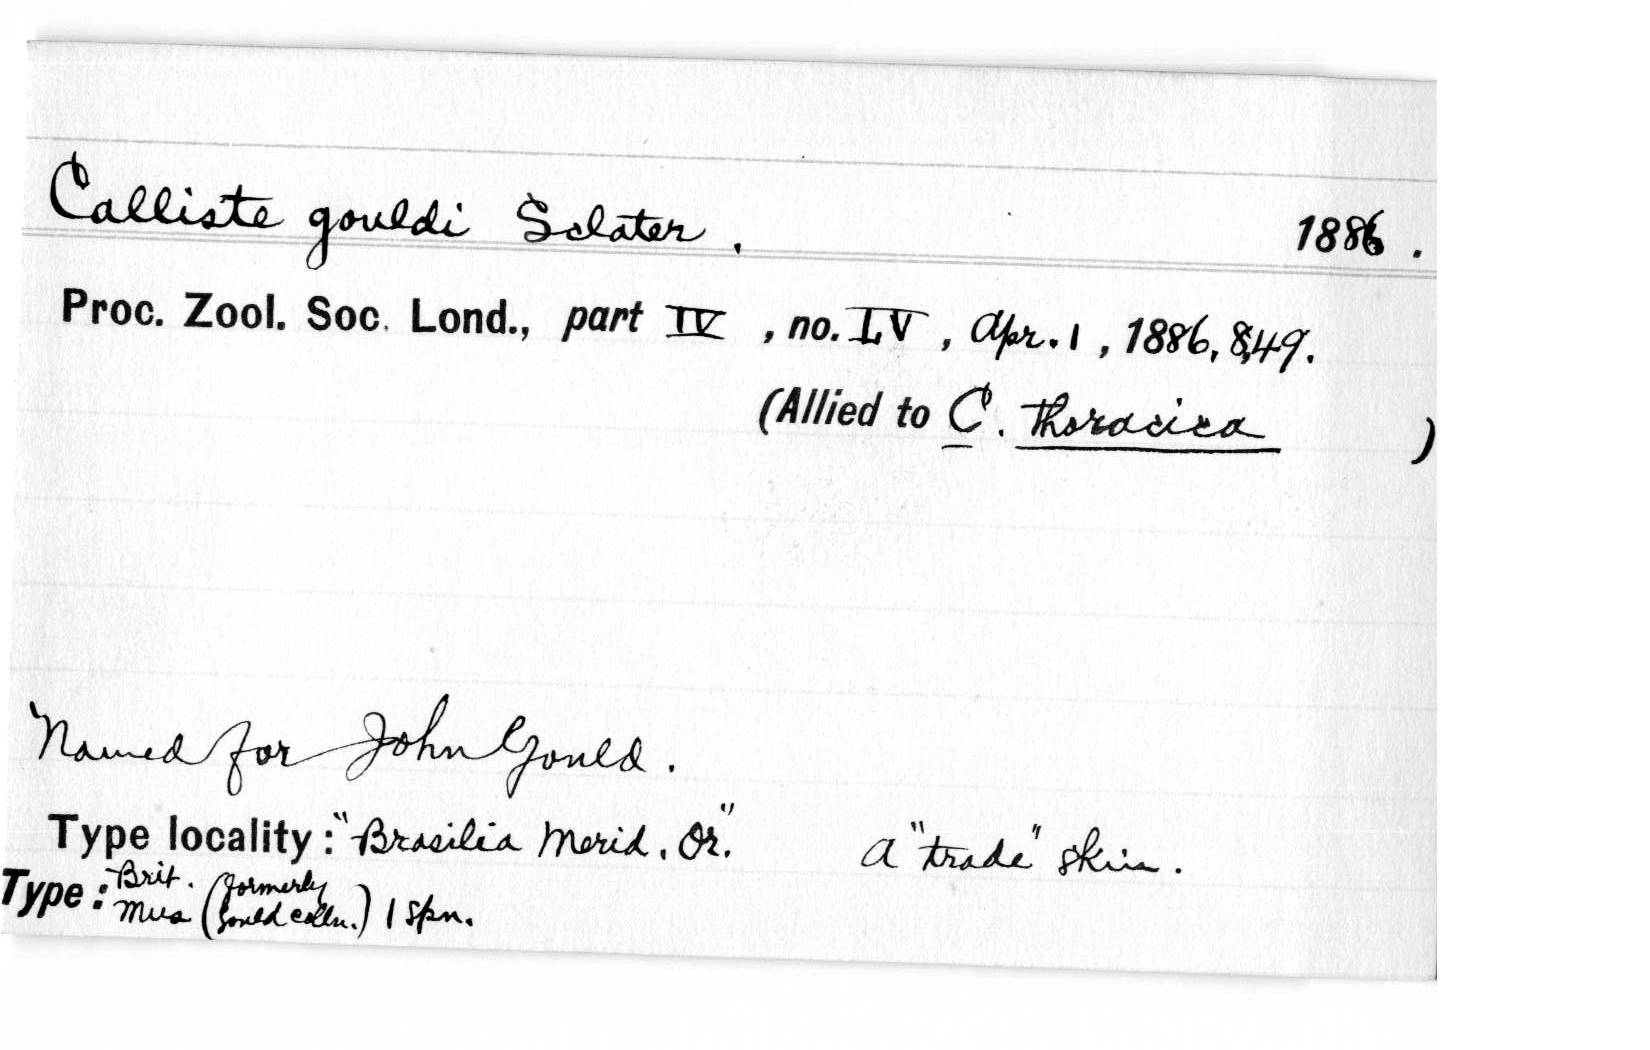 Calliste gouldi Sclater. 1886.
Proc. Zool. Soc. Lond., part IV, no. LV, Apr. 1, 1886, 849.
(Allied to C. thoracica)
Named for John Gould.
Type locality: "Brasilia Merid. Or." A "trade" skin.
Type: Brit. Mus (formerly Gould colln.) 1 spn.